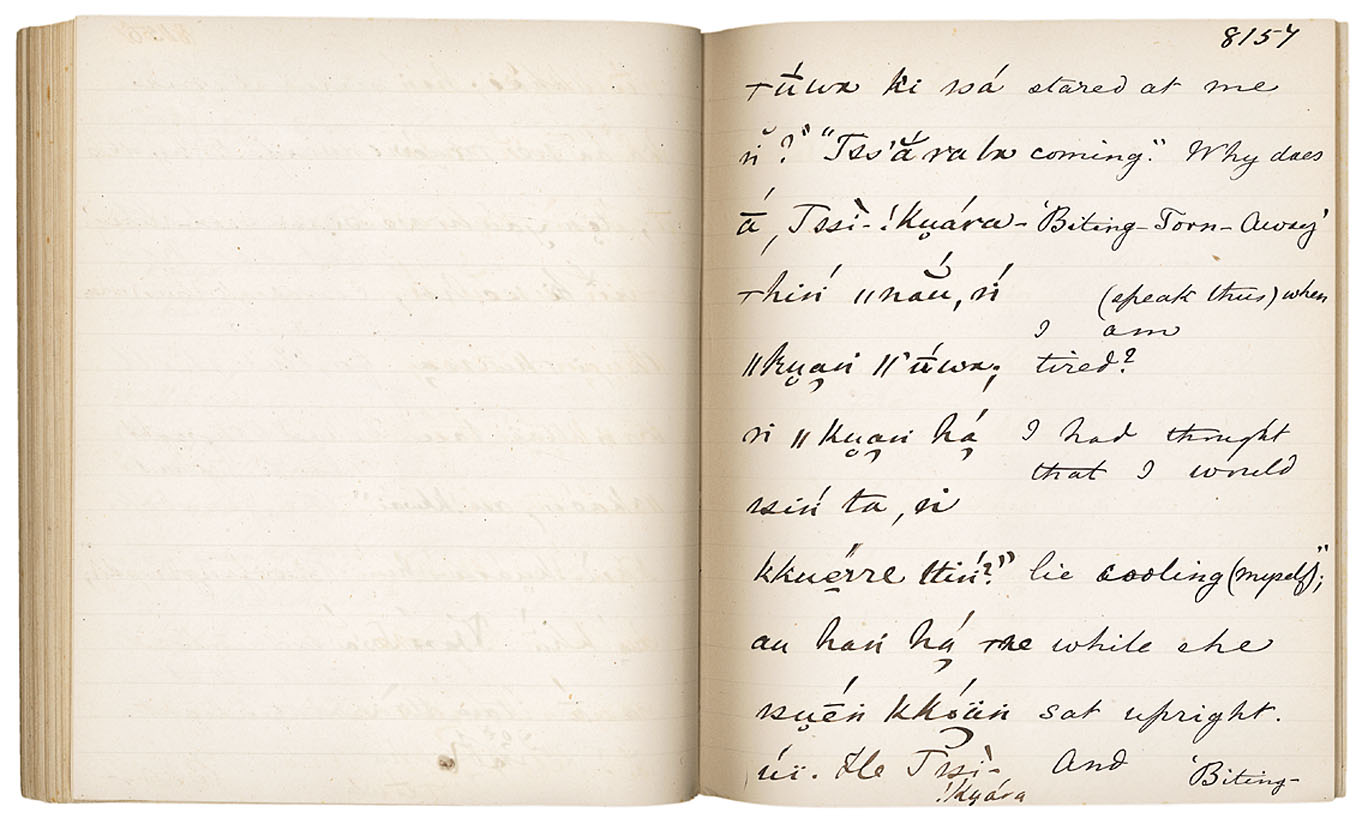 8157
ūwa ki ssá stared at me
ṅ?" "Tss'ā́ra ka coming." Why does
ā́, Tssì-!kuára - 'Biting-Torn-Away'
hiń ǁnaū, ń (speak thus) when
I am
ǁkuaṅ ǁ'ūwa; tired?
ń ǁkuaṅ há I had thought
that I would
ssiń ta, ṅ
kkuérre ttiń?" lie cooling (myself)";
au haṅ há ne while she
ssuéṅ kkóäṅ sat upright.
úï. He Tssì- And 'Biting-
!kuára